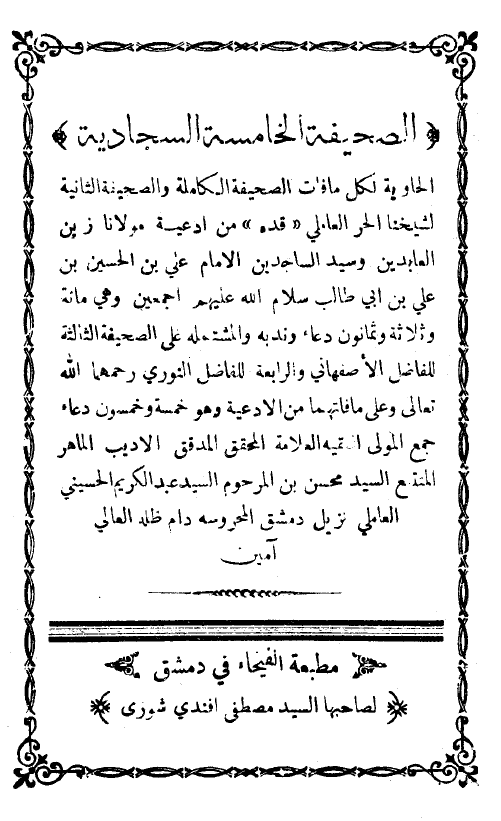 الصحيفة الخامسة السجادية
الحاوية لكل مافات الصحيفة الكاملة والصحيفة الثانية
لشيخنا الحر العاملي « قده » من ادعيــة مولانا زين
العابدين وسيد الساجدين الامام علي بن الحسين بن
علي بن ابي طالب سلام الله عليهم اجمعين وهي مائة
وثلاثة وثمانون دعاء وندبه والمشتمله على الصحيفة الثالثة
للفاضل الأصفهاني والرابعة للفاضل النوري رحمهما الله
تعالى وعلى مافاتهما من الادعية وهو خمسة وخمسون دعاء
جمع المولى الفقيه العلامة المحقق المدقق الاديب الماهر
المتتبع السيد محسن بن المرحوم السيد عبد الكريم الحسيني
العاملي نزيل دمشق المحروسه دام ظله العالي
آمين
مطبعة الفيحاء في دمشق
لصاحبها السيد مصطفى افندي شورى